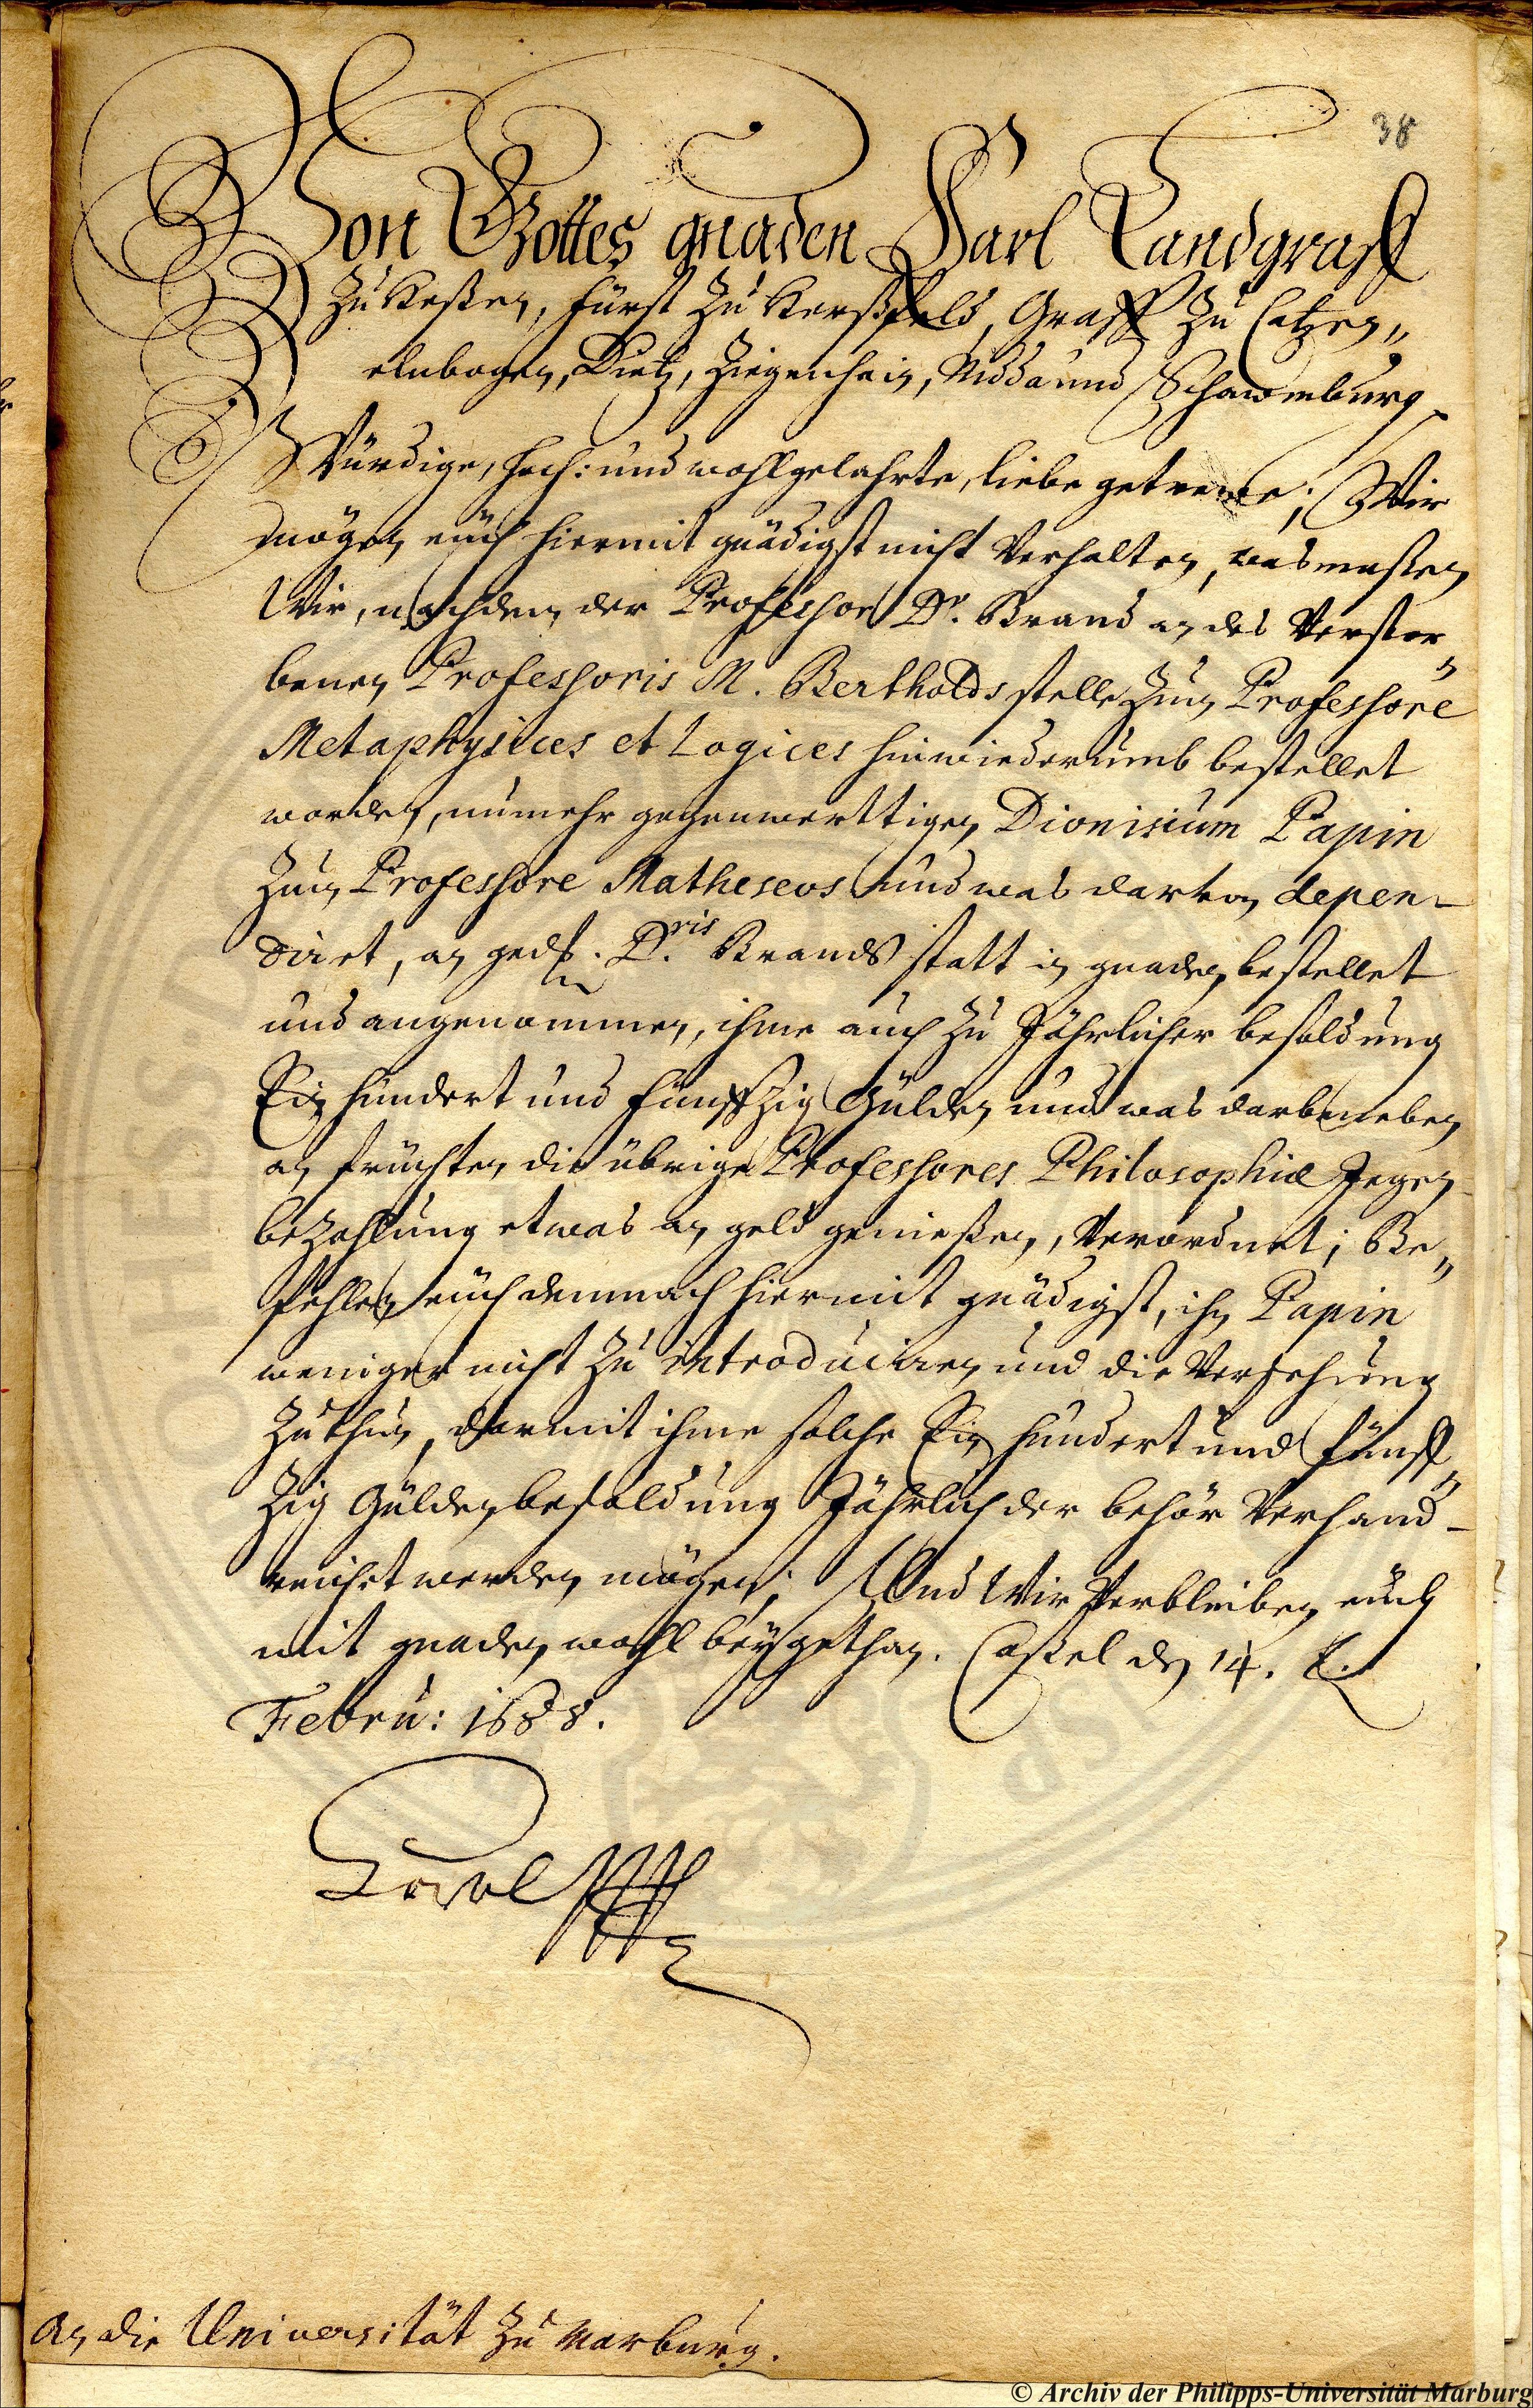 38
Von Gottes gnaden Karl Landgraff
Zu Heßen, Fürst Zu Herßfeld, Graff Zu Catzen„
elnbogen, Dietz, Ziegenhain, Nidda und Schawmburg
Würdige, hoch: und wohlgelahrte, liebe getrewe; Wir
mögen euch hiermit gnädigst nicht Verhalten, was maßen
Wir, nachdem der Professor Dr. Brand an des Verstor„
benen Professoris M. Bertholds stelle Zum Professore
Metaphysices et Logices hinwiederumb bestellet
worden, nunmehr gegenwerttigen Dionisium Papin
Zum Professore Matheseos und was darvon depen-
dirt, an ged. D.ris Brands statt in gnaden bestellet
und angenommen, ihme auch Zu Jährlicher besoldung
Ein hundert und funffzig Gülden und was darbeneben
an früchten die übrige Professores Philosophiæ gegen
bezahlung etwas an geld genießen, Verordnet; Be„
fehlen euch demnach hiermit gnädigst, ihn Papin
weniger nicht Zu introduciren und die Versehung
Zu thun, darmit ihme solche Ein hundert und funff„
Zig Gülden besoldung Jährlich der behör Verhand-
reicht werden mögen; Und Wir Verbleiben euch
mit gnaden wohl beygethan. Caßel den 14.
Febru: 1688.
Carl
An die Universität Zu Marburg.
© Archiv der Philipps-Universität Marburg